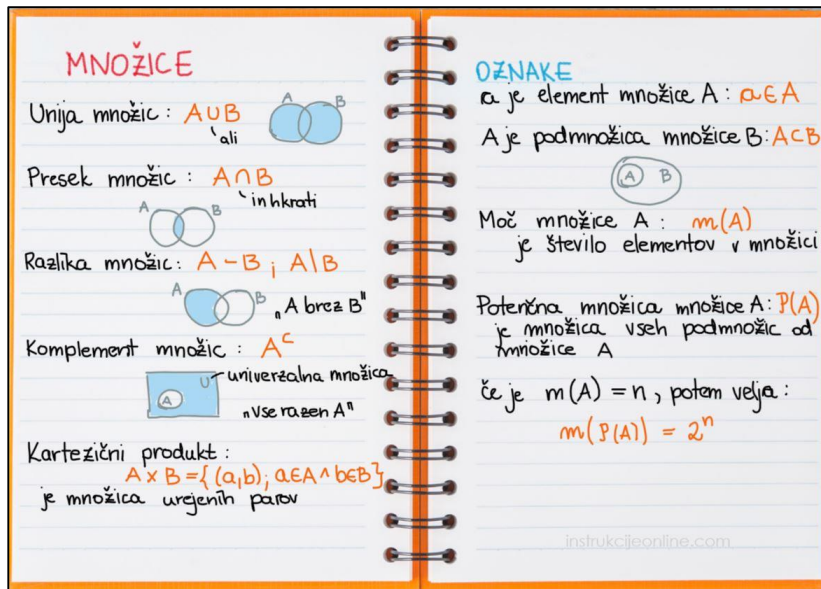 MNOŽICE
Unija množic : A ∪ B
ali
A B
Presek množic : A ∩ B
in hkrati
A B
Razlika množic: A - B ; A \ B
A B
"A brez B"
Komplement množic : Aᶜ
U
univerzalna množica
A
"vse razen A"
Kartezični produkt :
A × B = { (a,b); a∈A ∧ b∈B }
je množica urejenih parov
OZNAKE
a je element množice A : a ∈ A
A je podmnožica množice B: A ⊂ B
A B
Moč množice A : m(A)
je število elementov v množici
Potenčna množica množice A: P(A)
je množica vseh podmnožic od
množice A
če je m(A) = n , potem velja :
m(P(A)) = 2ⁿ
instrukcijeonline.com